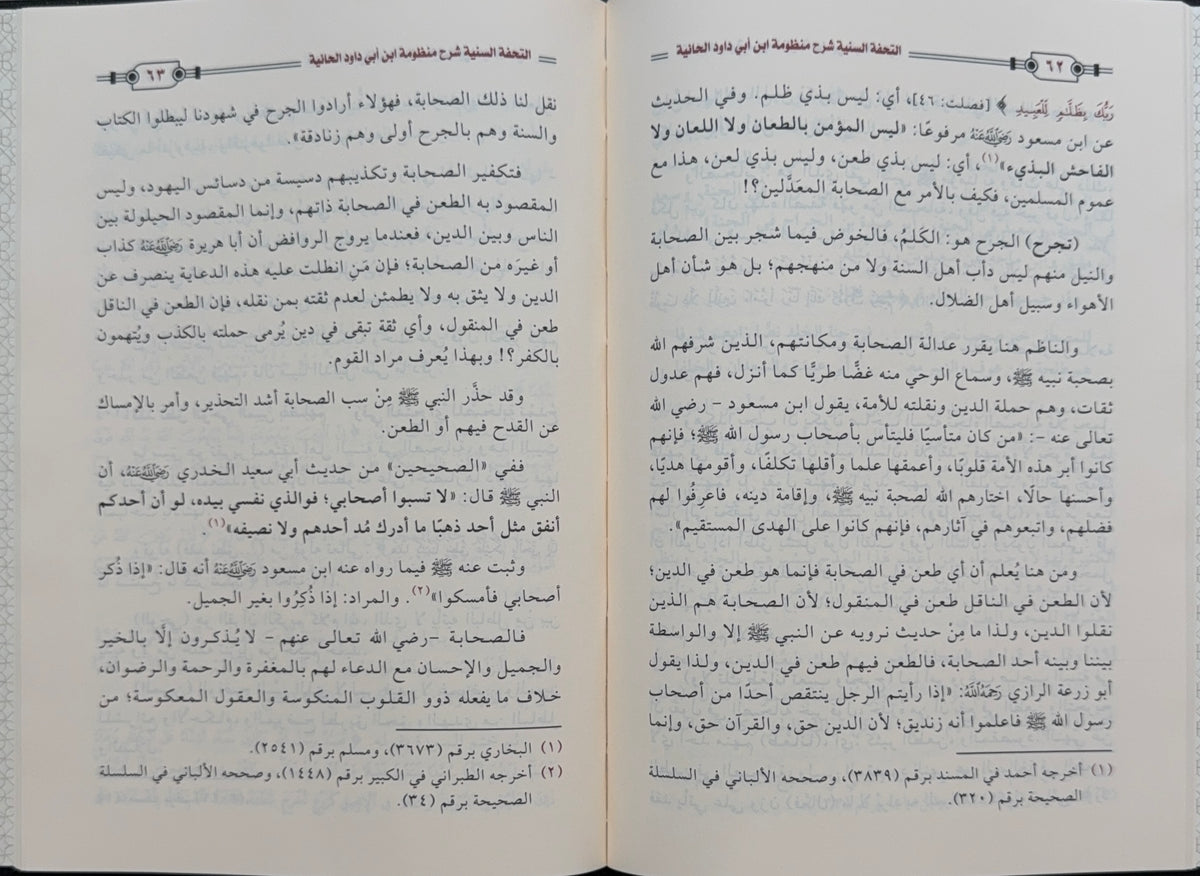 التحفة السنية شرح منظومة ابن أبي داود الحائية
٦٢
رَبُّكَ بِظَلَّٰمٖ لِّلۡعَبِيدِ ﴾ [فصلت: ٤٦]، أي: ليس بذي ظلم. وفي الحديث
عن ابن مسعود رَضِيَ اللَّهُ عَنْهُ مرفوعًا: «ليس المؤمن بالطعان ولا اللعان ولا
الفاحش البذيء»(١)، أي: ليس بذي طعن، وليس بذي لعن، هذا مع
عموم المسلمين، فكيف بالأمر مع الصحابة المعَدَّلين؟!
(تجرح) الجرح هو: الكَلمُ، فالخوض فيما شجر بين الصحابة
والنيل منهم ليس دأب أهل السنة ولا من منهجهم؛ بل هو شأن أهل
الأهواء وسبيل أهل الضلال.
والناظم هنا يقرر عدالة الصحابة ومكانتهم، الذين شرفهم الله
بصحبة نبيه ﷺ، وسماع الوحي منه غضًّا طريًّا كما أنزل، فهم عدول
ثقات، وهم حملة الدين ونقلته للأمة، يقول ابن مسعود - رضي الله
تعالى عنه -: «من كان متأسيًا فليتأس بأصحاب رسول الله ﷺ؛ فإنهم
كانوا أبر هذه الأمة قلوبًا، وأعمقها علما وأقلها تكلفًا، وأقومها هديًا،
وأحسنها حالًا، اختارهم الله لصحبة نبيه ﷺ، وإقامة دينه، فاعرِفُوا لهم
فضلهم، واتبعوهم في آثارهم، فإنهم كانوا على الهدى المستقيم».
ومن هنا يُعلم أن أي طعن في الصحابة فإنما هو طعن في الدين؛
لأن الطعن في الناقل طعن في المنقول؛ لأن الصحابة هم الذين
نقلوا الدين، ولذا ما مِنْ حديث نرويه عن النبي ﷺ إلا والواسطة
بيننا وبينه أحد الصحابة، فالطعن فيهم طعن في الدين، ولذا يقول
أبو زرعة الرازي رَحِمَهُ اللَّهُ: «إذا رأيتم الرجل ينتقص أحدًا من أصحاب
رسول الله ﷺ فاعلموا أنه زنديق؛ لأن الدين حق، والقرآن حق، وإنما
(١) أخرجه أحمد في المسند برقم (٣٨٣٩)، وصححه الألباني في السلسلة
الصحيحة برقم (٣٢٠).
التحفة السنية شرح منظومة ابن أبي داود الحائية
٦٣
نقل لنا ذلك الصحابة، فهؤلاء أرادوا الجرح في شهودنا ليبطلوا الكتاب
والسنة وهم بالجرح أولى وهم زنادقة».
فتكفير الصحابة وتكذيبهم دسيسة من دسائس اليهود، وليس
المقصود به الطعن في الصحابة ذاتهم، وإنما المقصود الحيلولة بين
الناس وبين الدين، فعندما يروج الروافض أن أبا هريرة رَضِيَ اللَّهُ عَنْهُ كذاب
أو غيرَه من الصحابة؛ فإن مَن انطلت عليه هذه الدعاية ينصرف عن
الدين ولا يثق به ولا يطمئن لعدم ثقته بمن نقله، فإن الطعن في الناقل
طعن في المنقول، وأي ثقة تبقى في دين يُرمى حملته بالكذب ويُتهمون
بالكفر؟! وبهذا يُعرف مراد القوم.
وقد حذَّر النبي ﷺ مِنْ سب الصحابة أشد التحذير، وأمر بالإمساك
عن القدح فيهم أو الطعن.
ففي «الصحيحين» من حديث أبي سعيد الخدري رَضِيَ اللَّهُ عَنْهُ، أن
النبي ﷺ قال: «لا تسبوا أصحابي؛ فوالذي نفسي بيده، لو أن أحدكم
أنفق مثل أحد ذهبًا ما أدرك مُد أحدهم ولا نصيفه»(١).
وثبت عنه ﷺ فيما رواه عنه ابن مسعود رَضِيَ اللَّهُ عَنْهُ أنه قال: «إذا ذُكر
أصحابي فأمسكوا»(٢). والمراد: إذا ذُكِرُوا بغير الجميل.
فالصحابة -رضي الله تعالى عنهم- لا يُذكرون إلَّا بالخير
والجميل والإحسان مع الدعاء لهم بالمغفرة والرحمة والرضوان،
خلاف ما يفعله ذوو القلوب المنكوسة والعقول المعكوسة؛ من
(١) البخاري برقم (٣٦٧٣)، ومسلم برقم (٢٥٤١).
(٢) أخرجه الطبراني في الكبير برقم (١٤٤٨)، وصححه الألباني في السلسلة
الصحيحة برقم (٣٤).